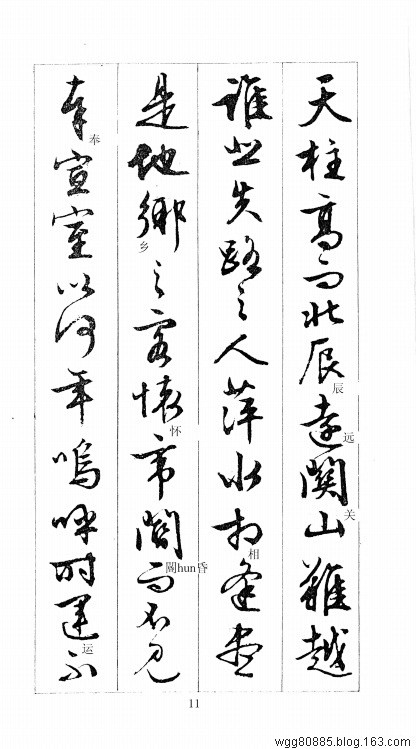 天柱高而北辰遠關山難越
辰
远
关
誰悲失路之人萍水相逢盡
相
是他鄉之客懷帝閽而不見
乡
怀
閽hun昏
奉宣室以何年嗚呼時運不
奉
运
11
wgg80885.blog.163.com